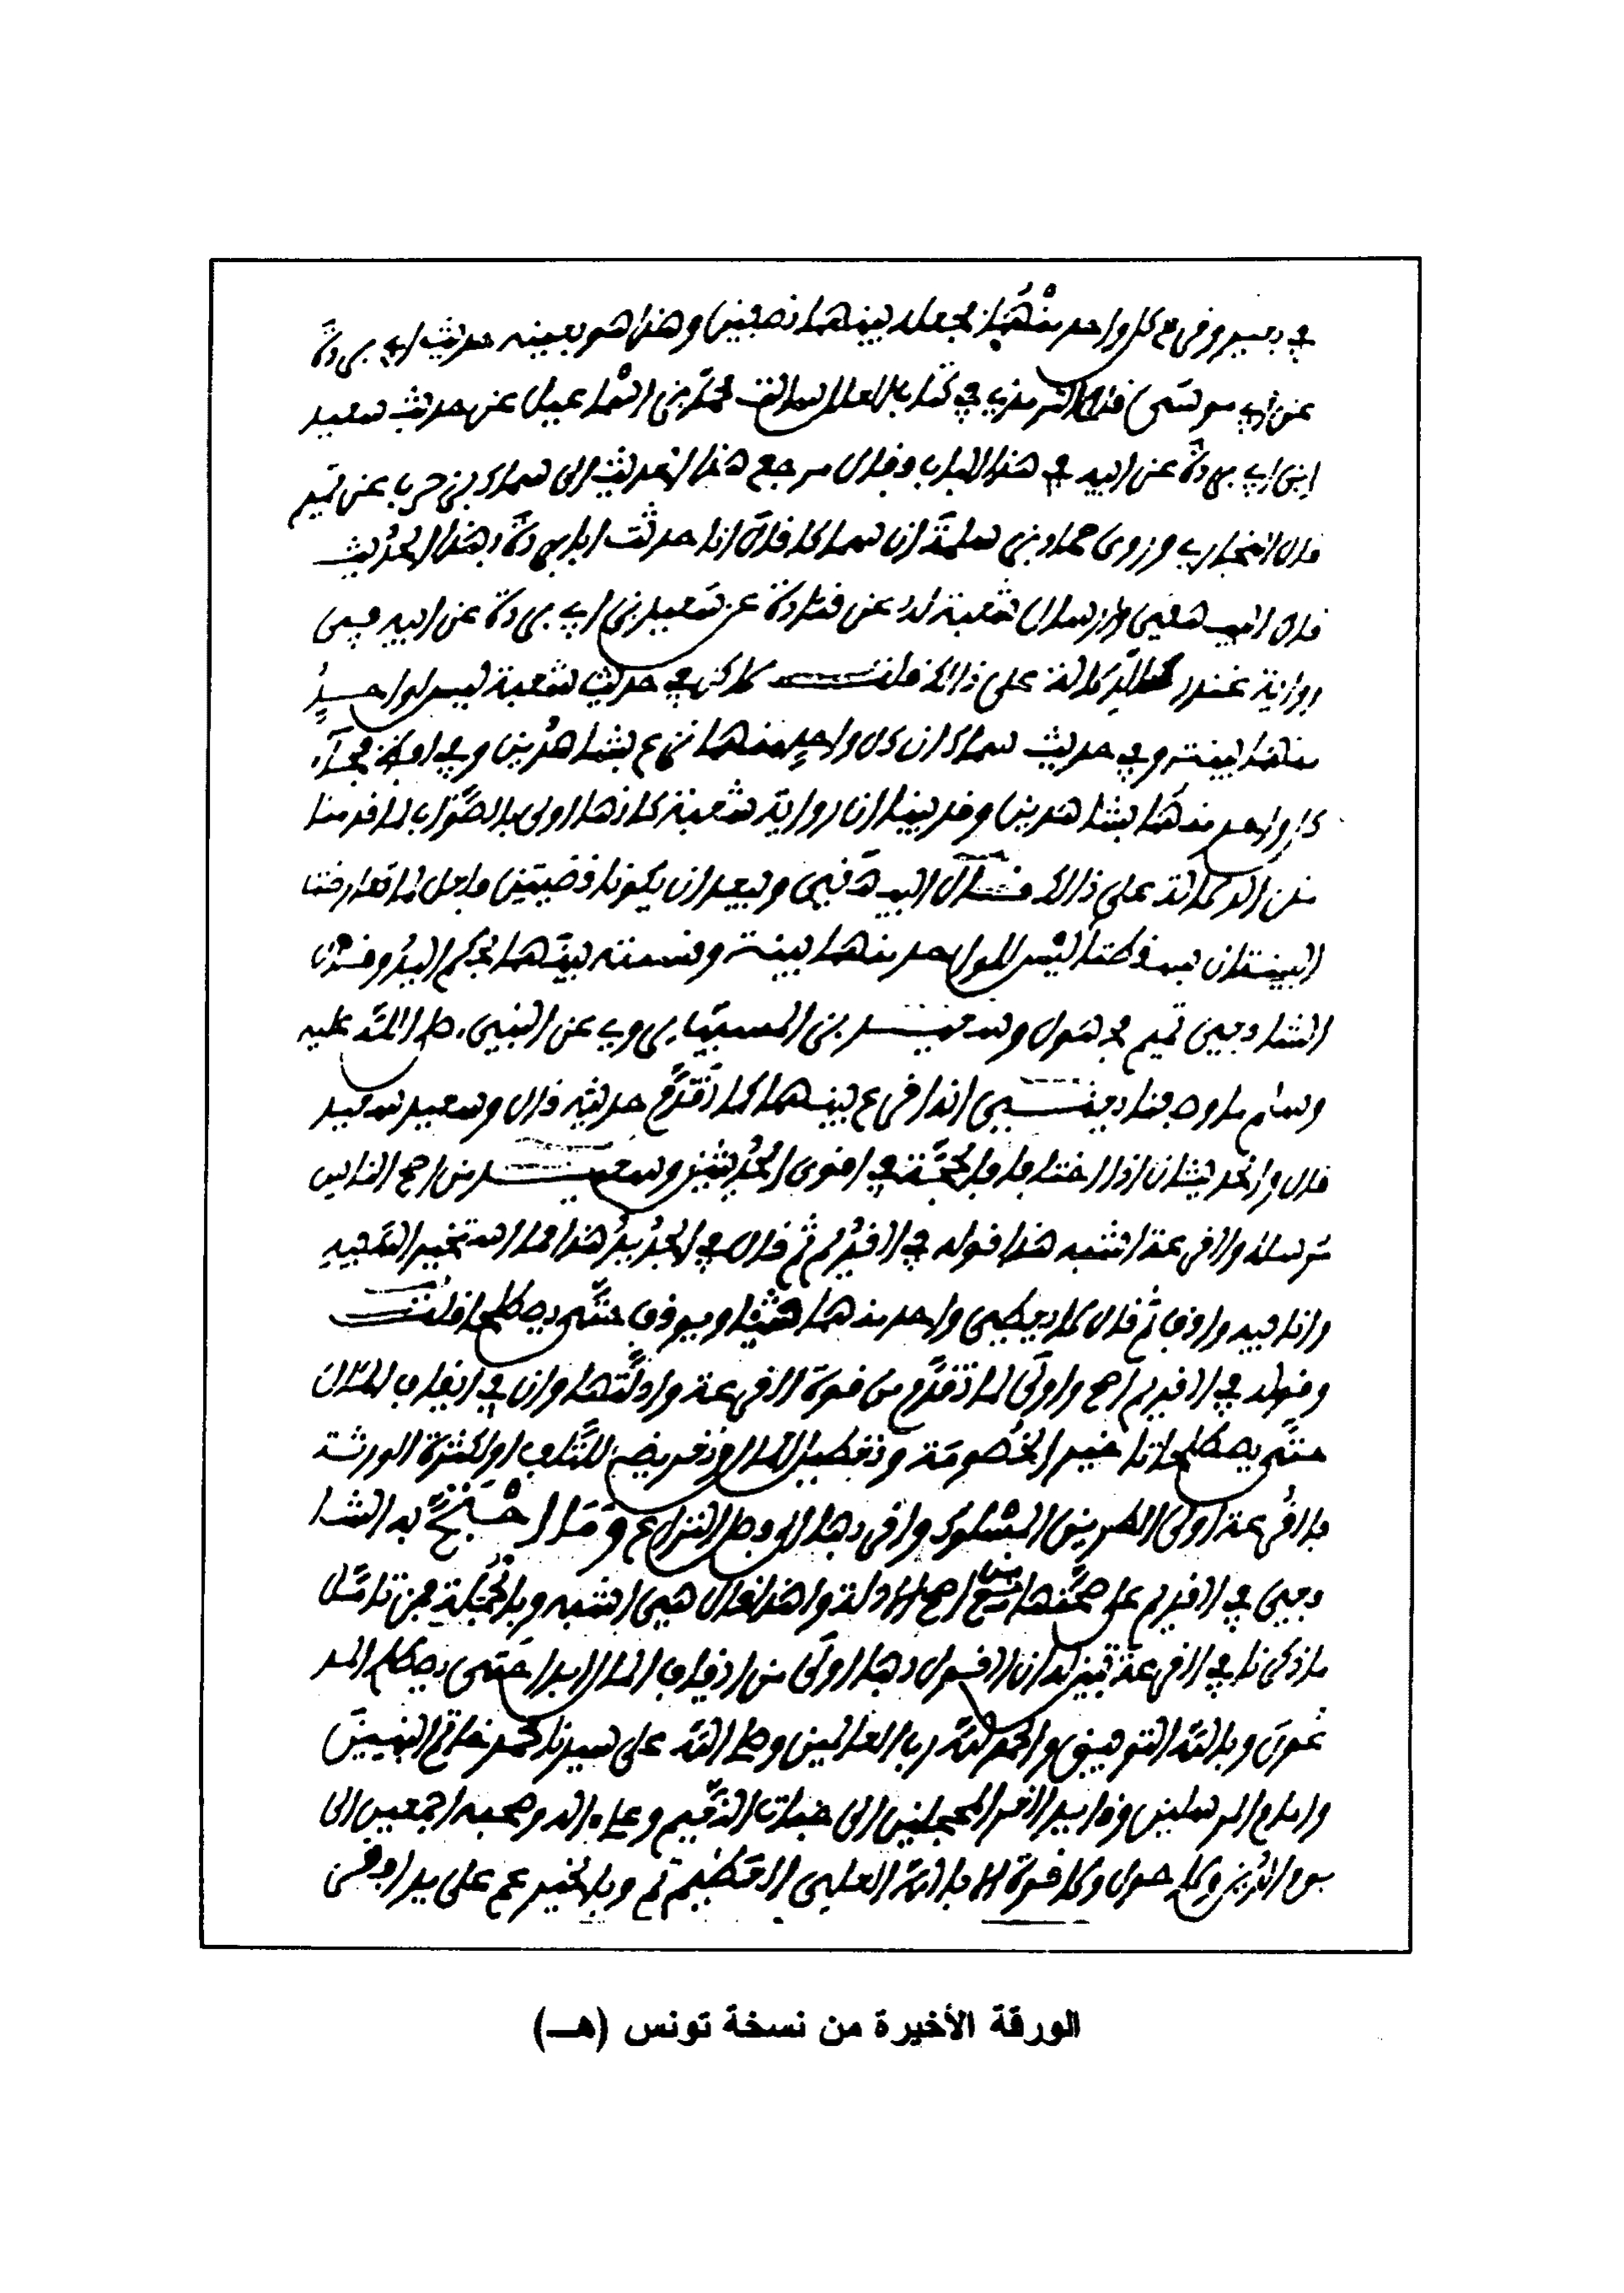 في بعير وفرع كل واحد منهما فجعله بينهما نصفين وهذا هو بعينه حديث ابي بردة
عن ابي موسى قال الترمذي في كتاب العلل سالت محمد بن اسماعيل عن حديث سعيد
ابن ابي بردة عن ابيه في هذا الباب وقال مرجع هذا الحديث الى سماك بن حرب عن تميم
قال البخاري وروى حماد بن سلمة ان سماكا قال انا حدثت ابا بردة بهذا الحديث
قال البيهقي وارسال شعبة له عن قتادة عن سعيد بن ابي بردة عن ابيه في
رواية غندر كالدلالة على ذالك قلت لاكن في حديث شعبة ليس لواحد
منهما بينة وفي حديث سماك ان كل واحد منهما نزع بشاهدين وفي لفظ فجاء
كل واحد منهما بشاهدين وقد بينا ان رواية شعبة كانها اولى بالصواب لما قدمنا
من الدلالة على ذالك قال البيهقي ويبعد ان يكونا قضيتين فلعل لما تعارضت
البينتان سقطتا ليس لكل واحد منهما بينة وقسمته بينهما بحكم اليد وقد قال
الشافعي تميم مجهول وسعيد بن المسيب يروي عن النبي صلى الله عليه
وسلم ما وصفنا يعني انه اقرع بينهما كما تقدم حديثه قال وسعيد سعيد
قال والحديثان اذا اختلفا فالحجة في اقوى الحديثين وسعيد من اصح الناس
مرسلا والقرعة اشبه هذا قوله في القديم ثم قال في الجديد هذا مما استخير الله فيه
وانا فيه واقف ثم قال لا يعطى واحد منهما شيئا ويوقف حتى يصطلحا قلت
وقوله في القديم اصح واولى لما تقدم من قوة القرعة وادلتها وان في ايقاف المال
حتى يصطلحا تاخير الخصومة وتعطيل المال وتعريضه للتلف ولكثرة الورثة
فالقرعة اولى الطريق المسلوك واقربها الى فصل النزاع وما احتج به الشا
فعي في القديم على صحتها من اصح الادلة ولهذا قال هي اشبه وبالجملة فمن تامل
ما ذكرنا في القرعة تبين له ان القول بها اولى من ايقاف المال ابدا حتى يصطلح المد
عون وبالله التوفيق والحمد لله رب العالمين وصلى الله على سيدنا محمد خاتم النبيين
وامام المرسلين وقايد الغر المحجلين الى جنات النعيم وعلى اله وصحبه اجمعين الى
يوم الدين ولا حول ولا قوة الا بالله العلي العظيم تم وبالخير عم على يد افقر
الورقة الأخيرة من نسخة تونس (هـ)